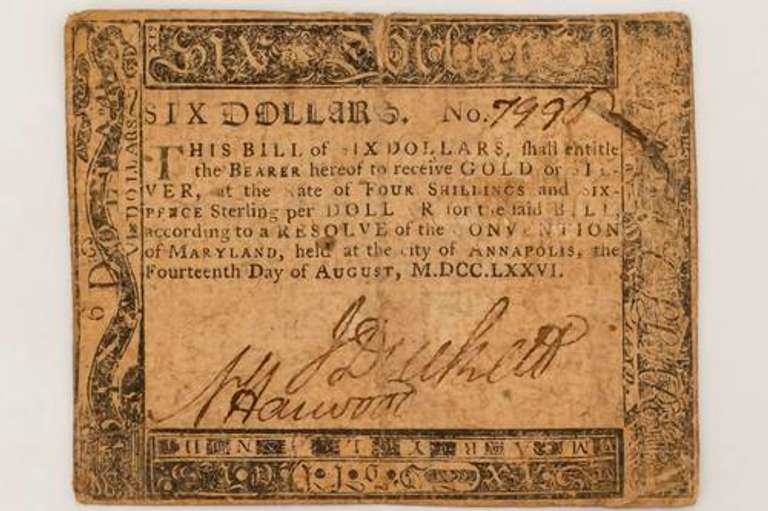 Six Dollars
SIX DOLLARS. No. 7990
THIS BILL of SIX DOLLARS, shall entitle
the BEARER hereof to receive GOLD or SIL-
VER, at the Rate of FOUR SHILLINGS and SIX-
PENCE Sterling per DOLLAR for the said BILL,
according to a RESOLVE of the CONVENTION
of MARYLAND, held at the City of ANNAPOLIS, the
Fourteenth Day of AUGUST, M.DCC.LXXVI.
J Duckett
N Harwood
MARYLAND
VI DOLLARS